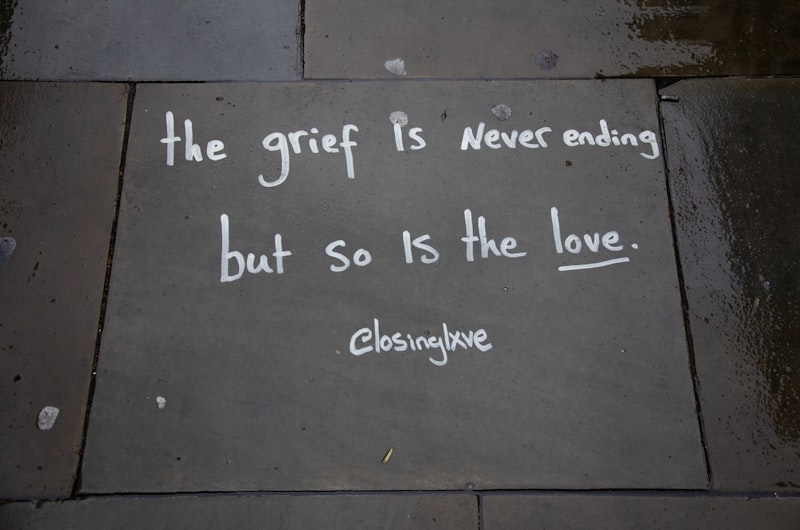 the grief is Never ending
but so is the love.
@losinglxve